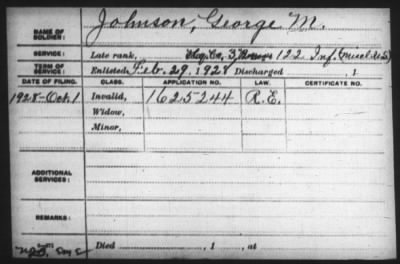 NAME OF SOLDIER: Johnson, George M.
SERVICE: Late rank, 122 Inf.
TERM OF SERVICE: Enlisted Feb. 29, 1928 Discharged , 1
DATE OF FILING. CLASS. APPLICATION NO. LAW. CERTIFICATE NO.
1928-Oct.1 Invalid, 1625244 R.E.
Widow,
Minor,
ADDITIONAL SERVICES:
REMARKS:
Died , 1 , at